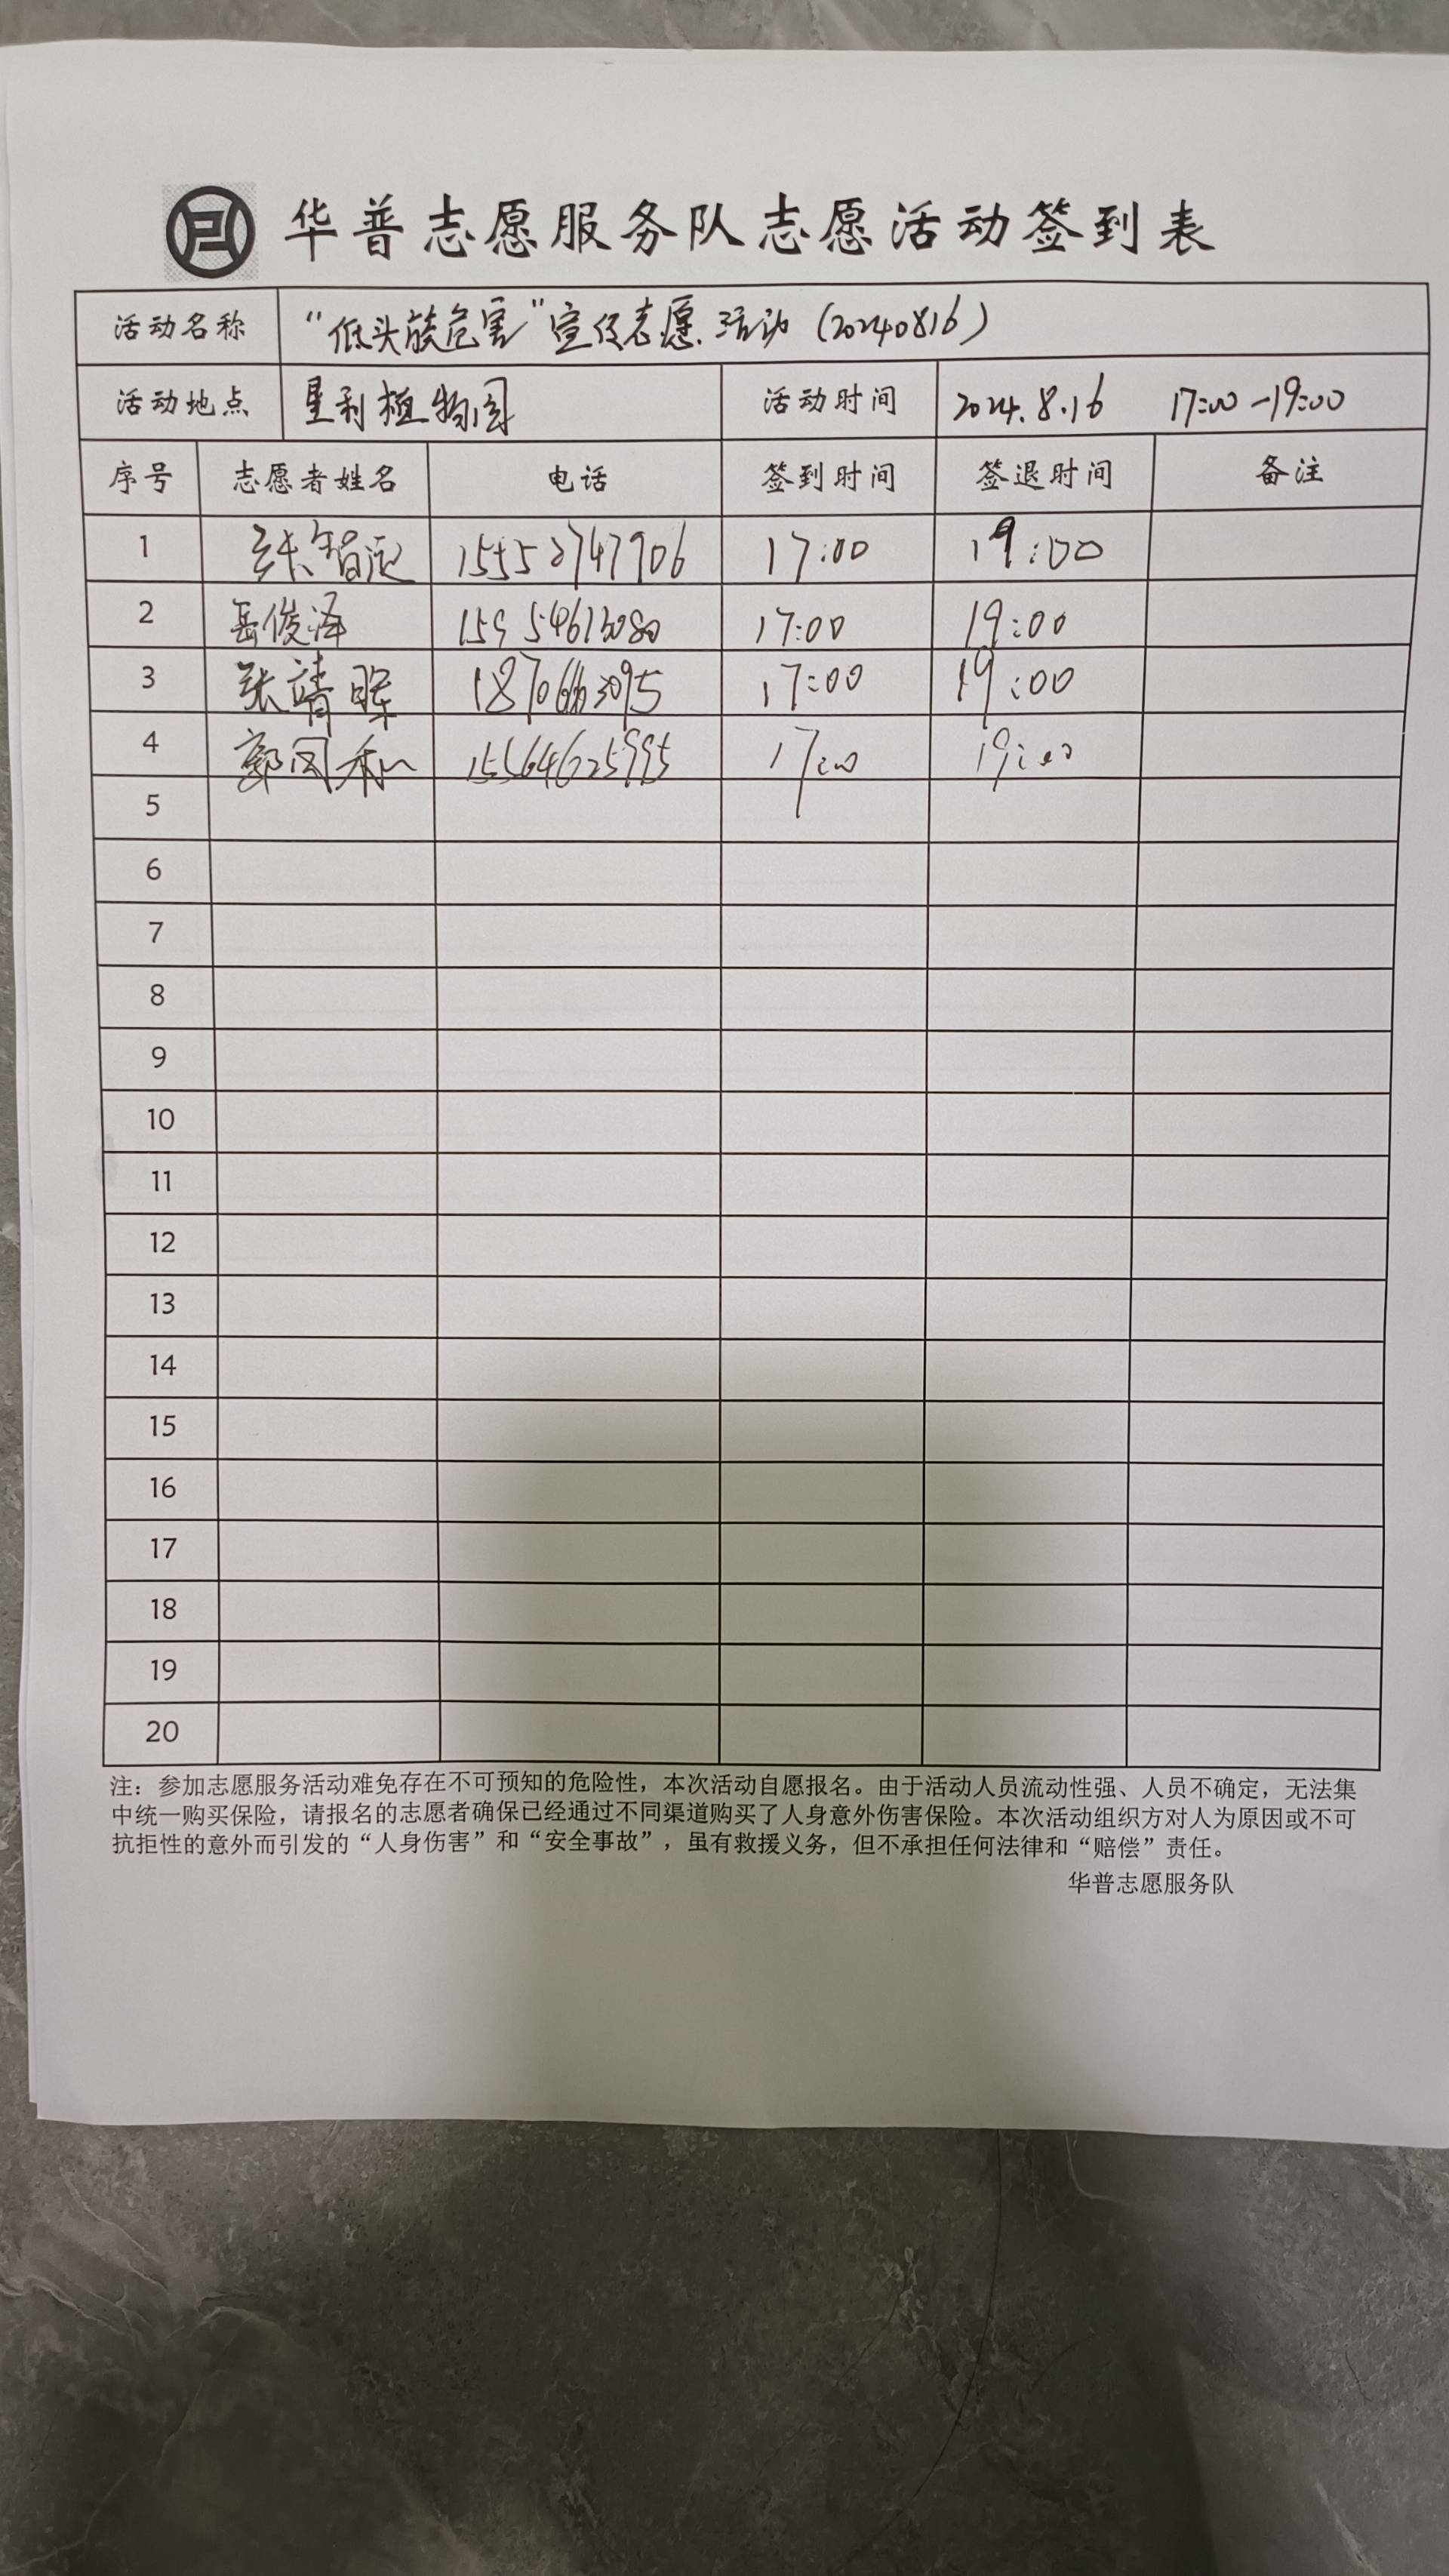 华普志愿服务队志愿活动签到表
活动名称 “低头族危害”宣传志愿活动（20240816）
活动地点 星利植物园 活动时间 2024.8.16 17:00-19:00
序号 志愿者姓名 电话 签到时间 签退时间 备注
1 15552747906 17:00 19:00
2 岳俊泽 15954613080 17:00 19:00
3 张靖晖 17:00 19:00
4 郭凤和 15564625995 17:00 19:00
5
6
7
8
9
10
11
12
13
14
15
16
17
18
19
20
注：参加志愿服务活动难免存在不可预知的危险性，本次活动自愿报名。由于活动人员流动性强、人员不确定，无法集
中统一购买保险，请报名的志愿者确保已经通过不同渠道购买了人身意外伤害保险。本次活动组织方对人为原因或不可
抗拒性的意外而引发的“人身伤害”和“安全事故”，虽有救援义务，但不承担任何法律和“赔偿”责任。
华普志愿服务队